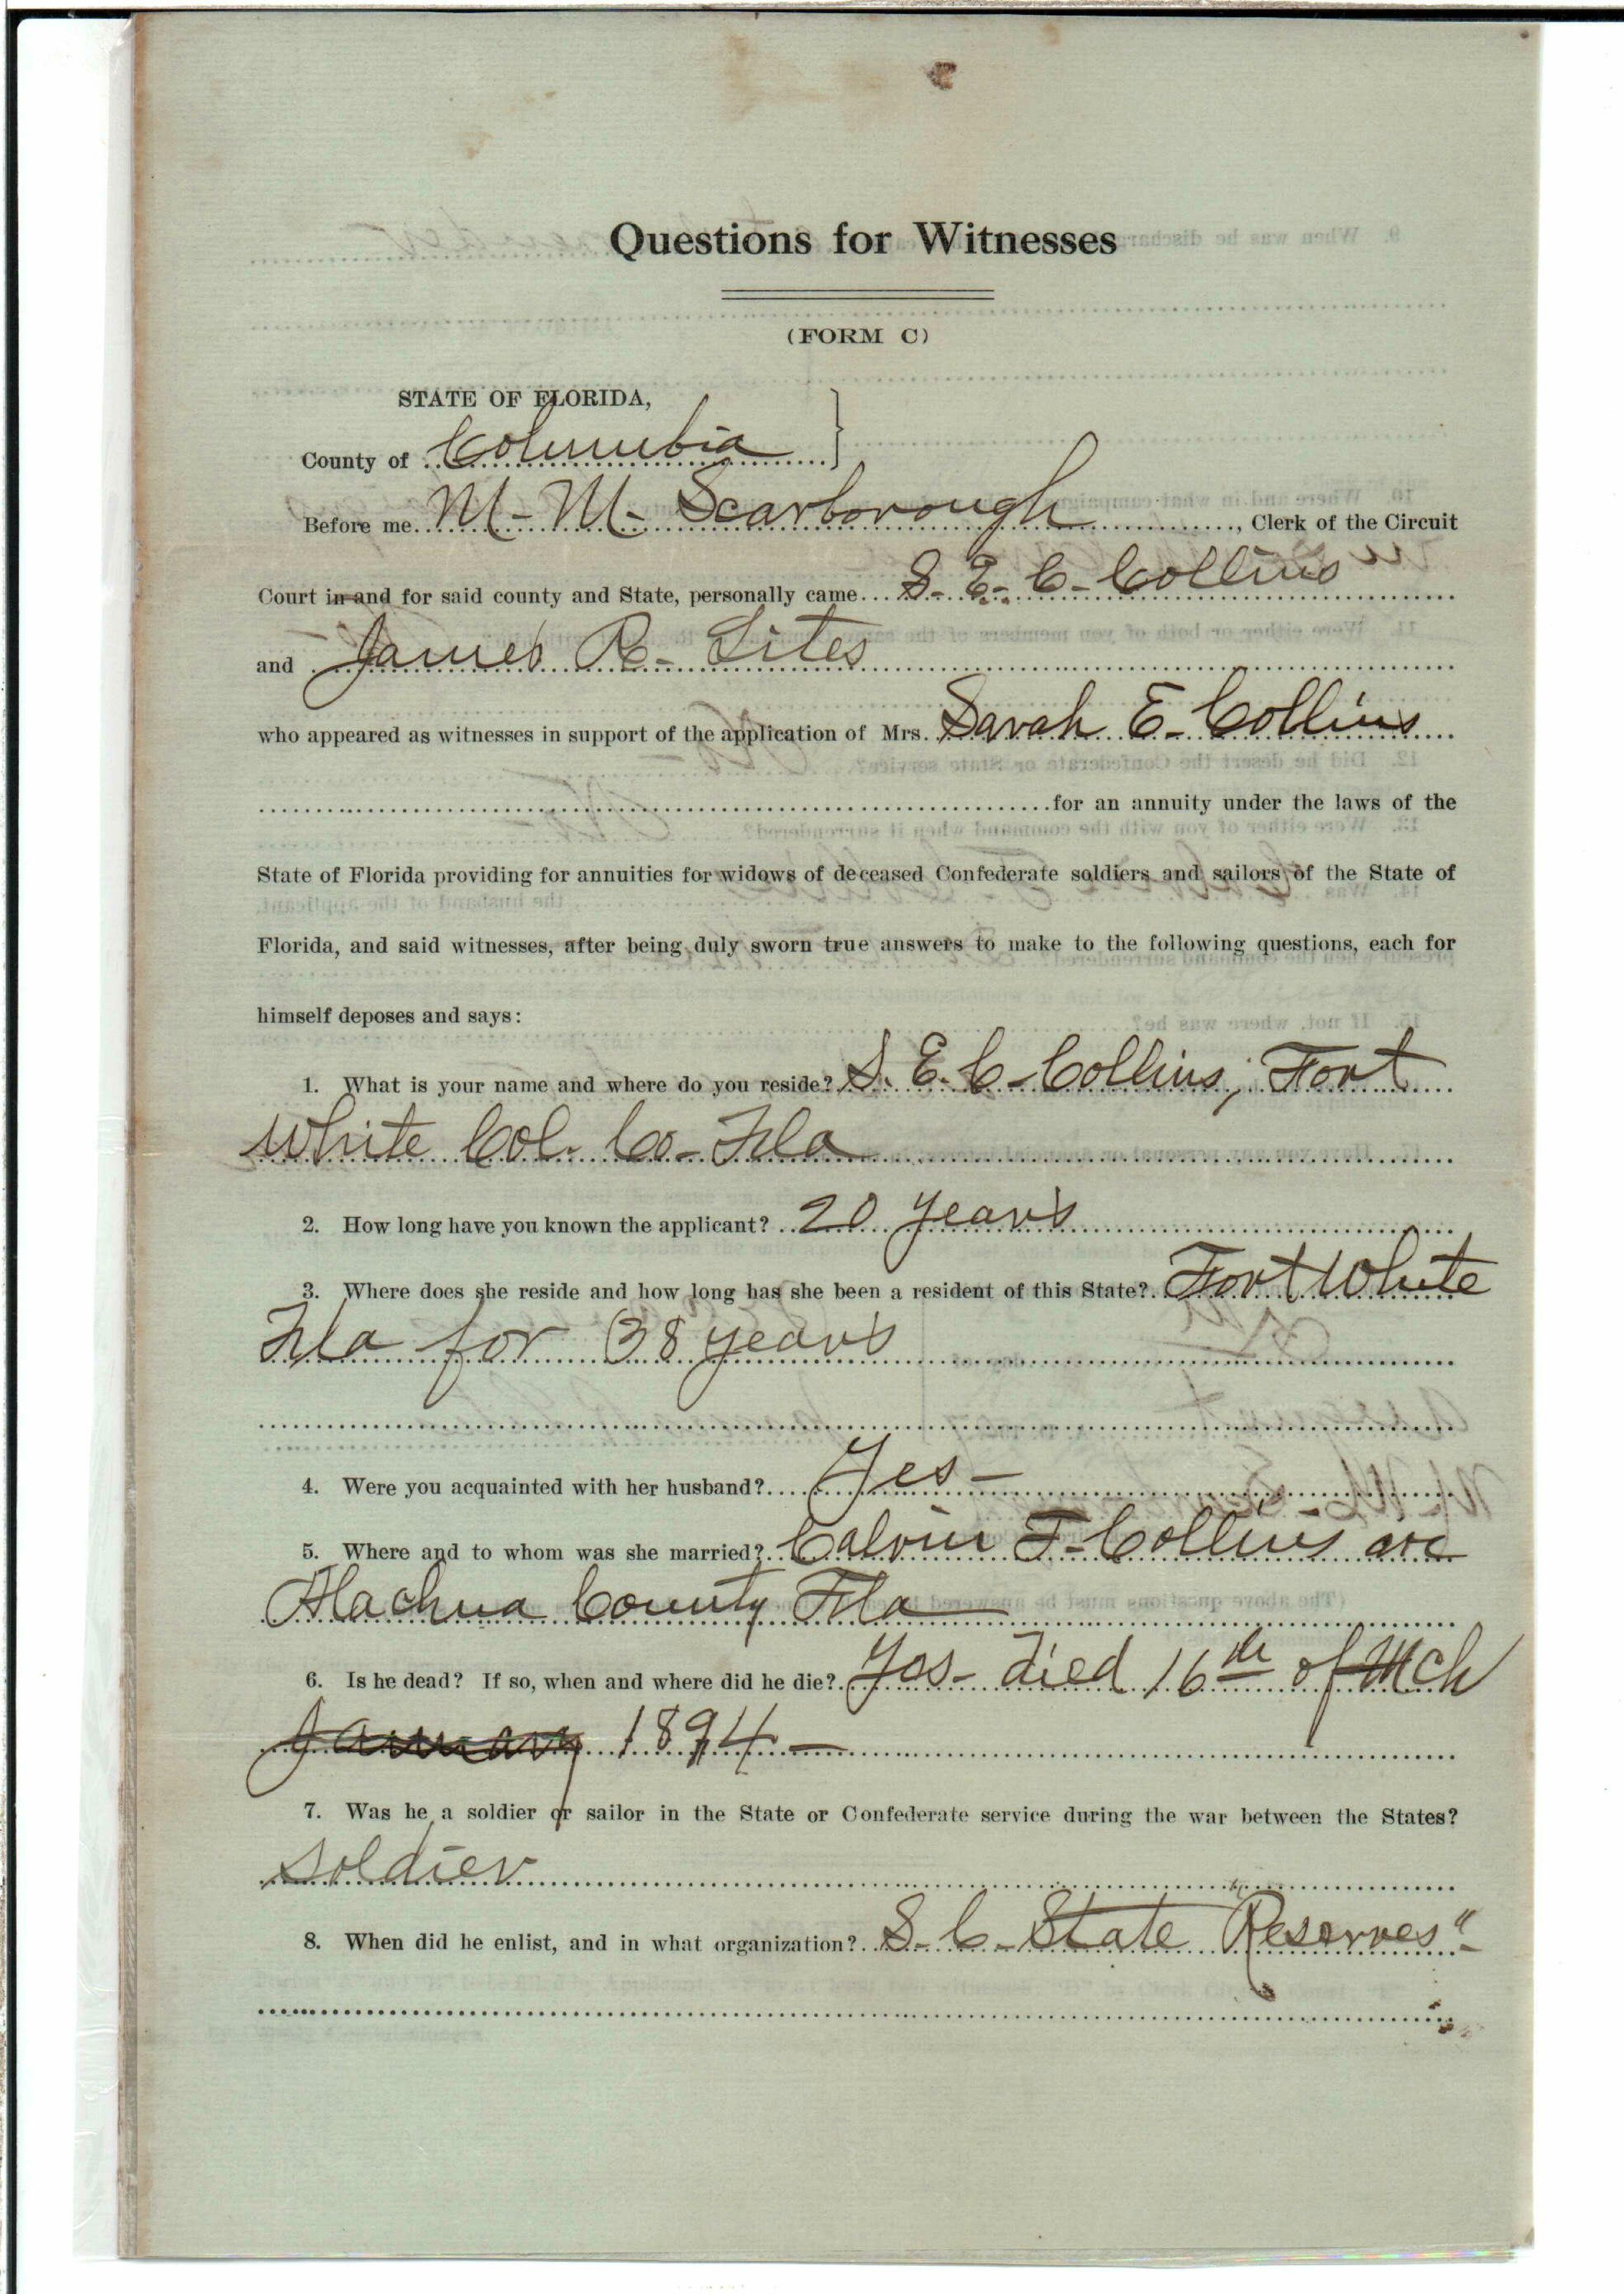 Questions for Witnesses
(FORM C)
STATE OF FLORIDA,
County of Columbia
Before me M- M- Scarborough, Clerk of the Circuit
Court in and for said county and State, personally came S- E- C- Collins
and James R- Sites
who appeared as witnesses in support of the application of Mrs. Sarah E- Collins
for an annuity under the laws of the
State of Florida providing for annuities for widows of deceased Confederate soldiers and sailors of the State of
Florida, and said witnesses, after being duly sworn true answers to make to the following questions, each for
himself deposes and says:
1. What is your name and where do you reside? S. E. C- Collins, Fort
White Col. Co- Fla
2. How long have you known the applicant? 20 years
3. Where does she reside and how long has she been a resident of this State? Fort White
Fla for 38 years
4. Were you acquainted with her husband? Yes-
5. Where and to whom was she married? Calvin F- Collins
Alachua County Fla
6. Is he dead? If so, when and where did he die? Yes- died 16th of Mch
January 1894-
7. Was he a soldier or sailor in the State or Confederate service during the war between the States?
soldier
8. When did he enlist, and in what organization? S- C- State "Reserves"-